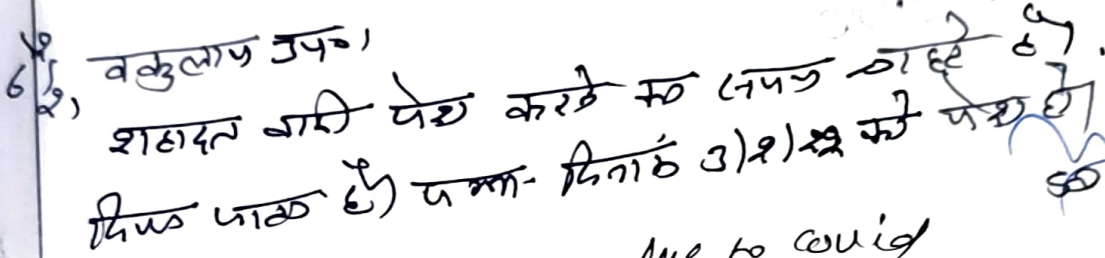 वकुलाय उप०।
शहादत वादी पेश करने का समय चाहते है।
दिया जाता है। पत्रा- दिनांक 3)2)22 को पेश हो।
due to covid